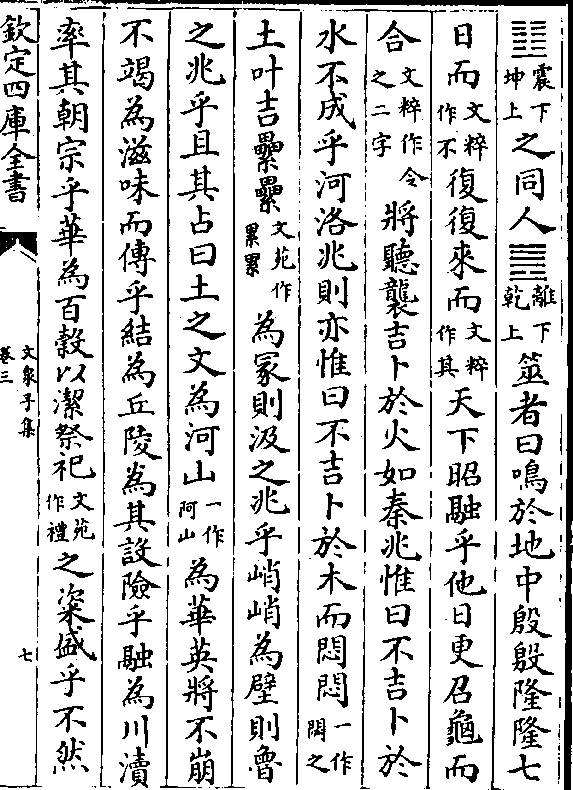 ䷗震下坤上之同人䷌離下乾上筮者曰鳴於地中殷殷隆隆七
日而文粹作不復復來而文粹作其天下昭融乎他日更召龜而
合文粹作令之二字將聽襲吉卜於火如秦兆惟曰不吉卜於
水不成乎河洛兆則亦惟曰不吉卜於木而悶悶一作之
土叶吉纍纍文苑作累累為冢則汲之兆乎峭峭為壁則魯
之兆乎且其占曰土之文為河山一作阿山為華英將不崩
不竭為滋味而傳乎結為丘陵為其設險乎融為川瀆
率其朝宗乎華為百穀以潔祭祀文苑作禮之粢盛乎不然
欽定四庫全書
文泉子集
卷三
七